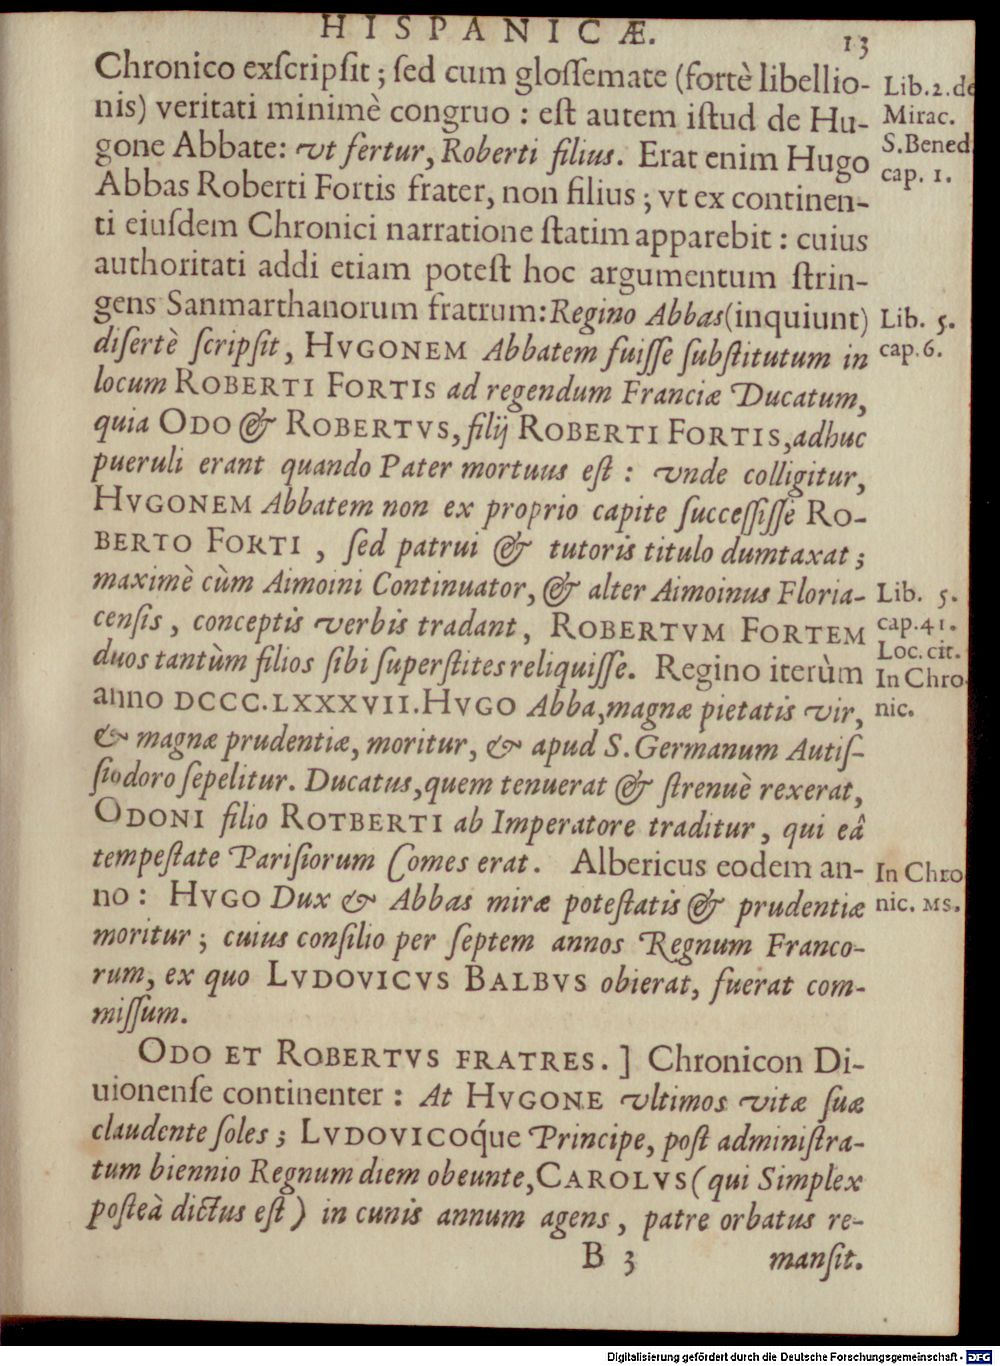 HISPANICÆ.
13
Chronico exſcripſit; ſed cum gloſſemate (fortè libellio-
nis) veritati minimè congruo : eſt autem iſtud de Hu-
gone Abbate: vt fertur, Roberti filius. Erat enim Hugo
Abbas Roberti Fortis frater, non filius; vt ex continen-
ti eiuſdem Chronici narratione ſtatim apparebit : cuius
authoritati addi etiam poteſt hoc argumentum ſtrin-
gens Sanmarthanorum fratrum: Regino Abbas (inquiunt)
diſertè ſcripſit, HVGONEM Abbatem fuiſſe ſubſtitutum in
locum ROBERTI FORTIS ad regendum Franciæ Ducatum,
quia ODO & ROBERTVS, filij ROBERTI FORTIS, adhuc
pueruli erant quando Pater mortuus eſt : vnde colligitur,
HVGONEM Abbatem non ex proprio capite ſucceſſiſſe RO-
BERTO FORTI , ſed patrui & tutoris titulo dumtaxat ;
maximè cùm Aimoini Continuator, & alter Aimoinus Floria-
cenſis , conceptis verbis tradant , ROBERTVM FORTEM
duos tantùm filios ſibi ſuperſtites reliquiſſe. Regino iterùm
anno DCCC.LXXXVII. HVGO Abba, magnæ pietatis vir,
& magnæ prudentiæ, moritur, & apud S. Germanum Autiſ-
ſiodoro ſepelitur. Ducatus, quem tenuerat & ſtrenuè rexerat,
ODONI filio ROTBERTI ab Imperatore traditur, qui eâ
tempeſtate Pariſiorum Comes erat. Albericus eodem an-
no : HVGO Dux & Abbas miræ poteſtatis & prudentiæ
moritur ; cuius conſilio per ſeptem annos Regnum Franco-
rum, ex quo LVDOVICVS BALBVS obierat, fuerat com-
miſſum.
ODO ET ROBERTVS FRATRES. ] Chronicon Di-
uionenſe continenter : At HVGONE vltimos vitæ ſuæ
claudente ſoles ; LVDOVICOq́ue Principe, poſt adminiſtra-
tum biennio Regnum diem obeunte, CAROLVS (qui Simplex
poſteà dictus eſt) in cunis annum agens , patre orbatus re-
B 3
manſit.
Lib. 2. de
Mirac.
S. Bened.
cap. 1.
Lib. 5.
cap. 6.
Lib. 5.
cap. 41.
Loc. cit.
In Chro
nic.
In Chro
nic. MS.
Digitalisierung gefördert durch die Deutsche Forschungsgemeinschaft - DFG